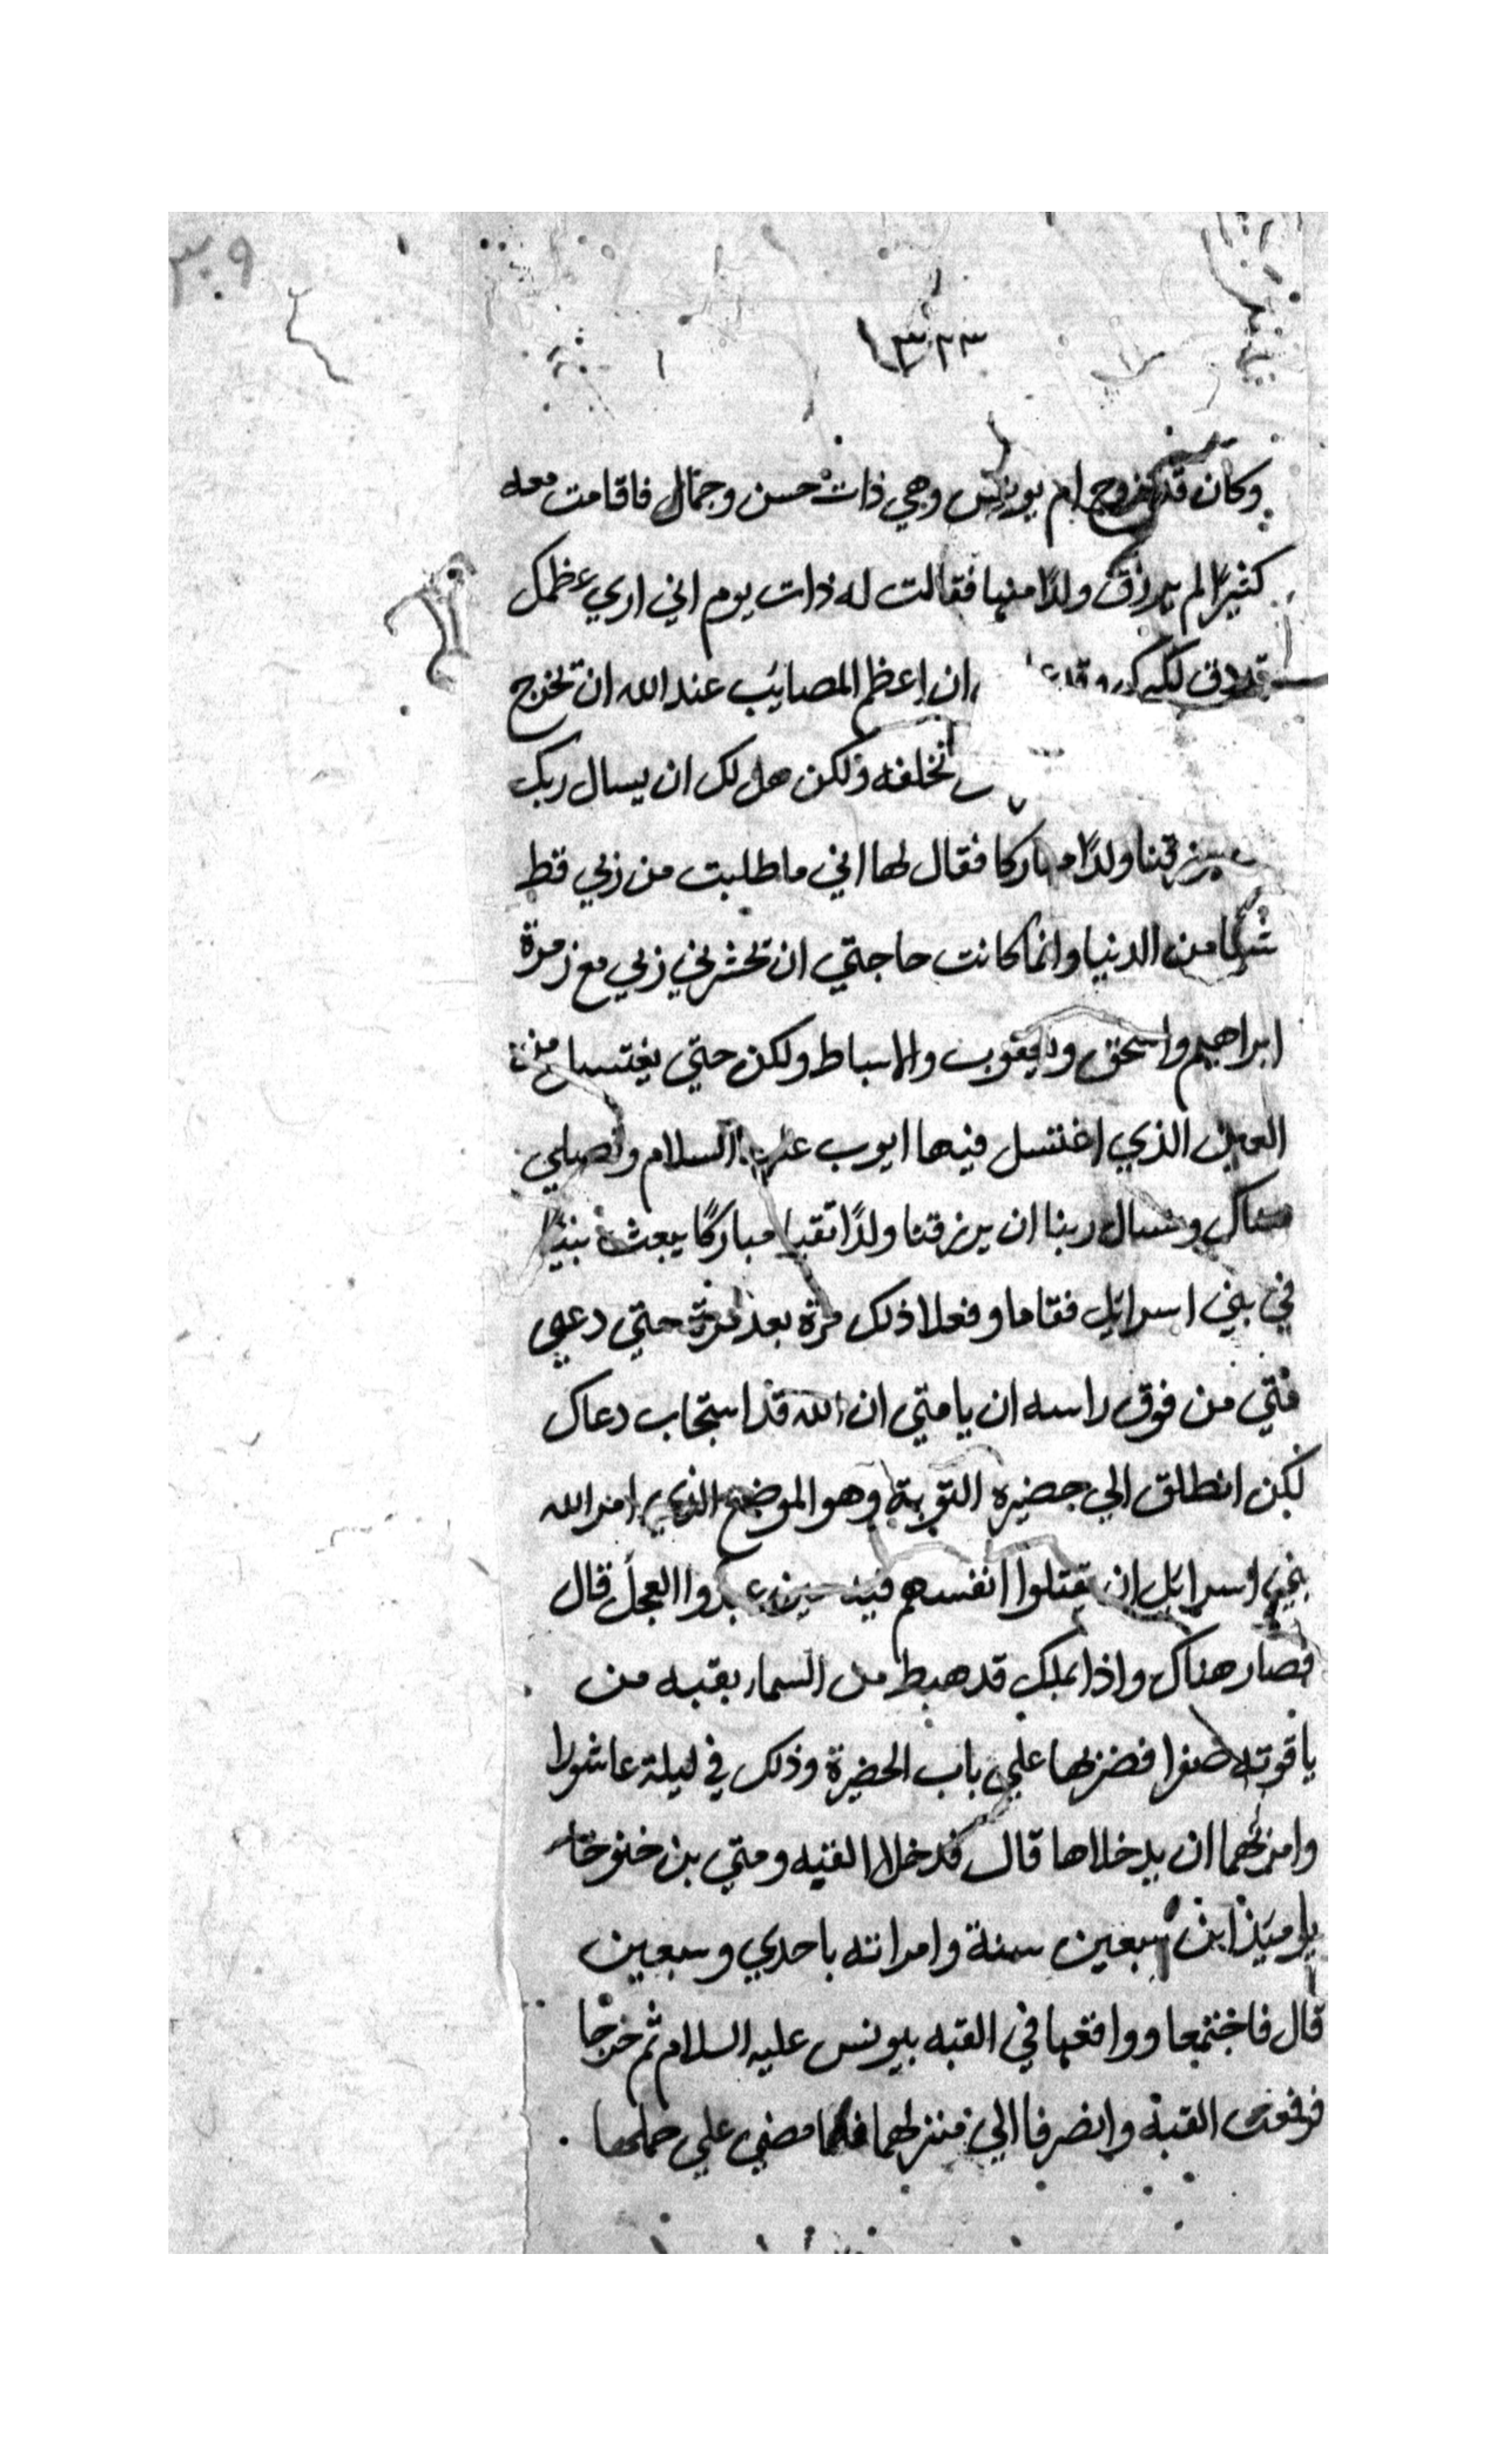 ٣٠٩
١٣٢٣
وكان قد تزوج ام يونس وهي ذات حسن وجمال فاقامت معه
كثيرا لم يرزق ولدًا منها فقالت له ذات يوم اني اري عظمك
قد دق لكبرك وقد ان اعظم المصايب عند الله ان تخرج
تخلفه ولكن هل لك ان يسال ربك
يرزقنا ولدًا مباركا فقال لها اني ما طلبت من ربي قط
شيا من الدنيا وانما كانت حاجتي ان تحشرني ربي مع زمرة
ابراهيم واسحق ويعقوب والاسباط ولكن حتي يغتسل من
العين الذي اغتسل فيها ايوب عليه السلام ونصلي
هناك ونسال ربنا ان يرزقنا ولدًا تقيا مباركًا يبعث نبيًا
في بني اسرايل فقاما وفعلا ذلك مرة بعد مرة حتي دعي
متي من فوق راسه ان يا متي ان الله قد استجاب دعاك
لكن انطلق الي حضيره التوبة وهو الموضع الذي امر الله
بني اسرايل ان يقتلوا انفسهم فيه حين عبدوا العجل قال
فصار هناك واذا بملك قد هبط من السما بقبه من
ياقوته صفرا فضربها علي باب الحضيرة وذلك في ليلة عاشورا
وامرهما ان يدخلاها قال فدخلا القبه ومتي بن خنوخا
يوميذ ابن سبعين سنة وامراته باحدي وسبعين
قال فاجتمعا وواقعها في القبه بيونس عليه السلام ثم خرجا
فرفعت القبة وانصرفا الي منزلهما فلما مضي علي حملها